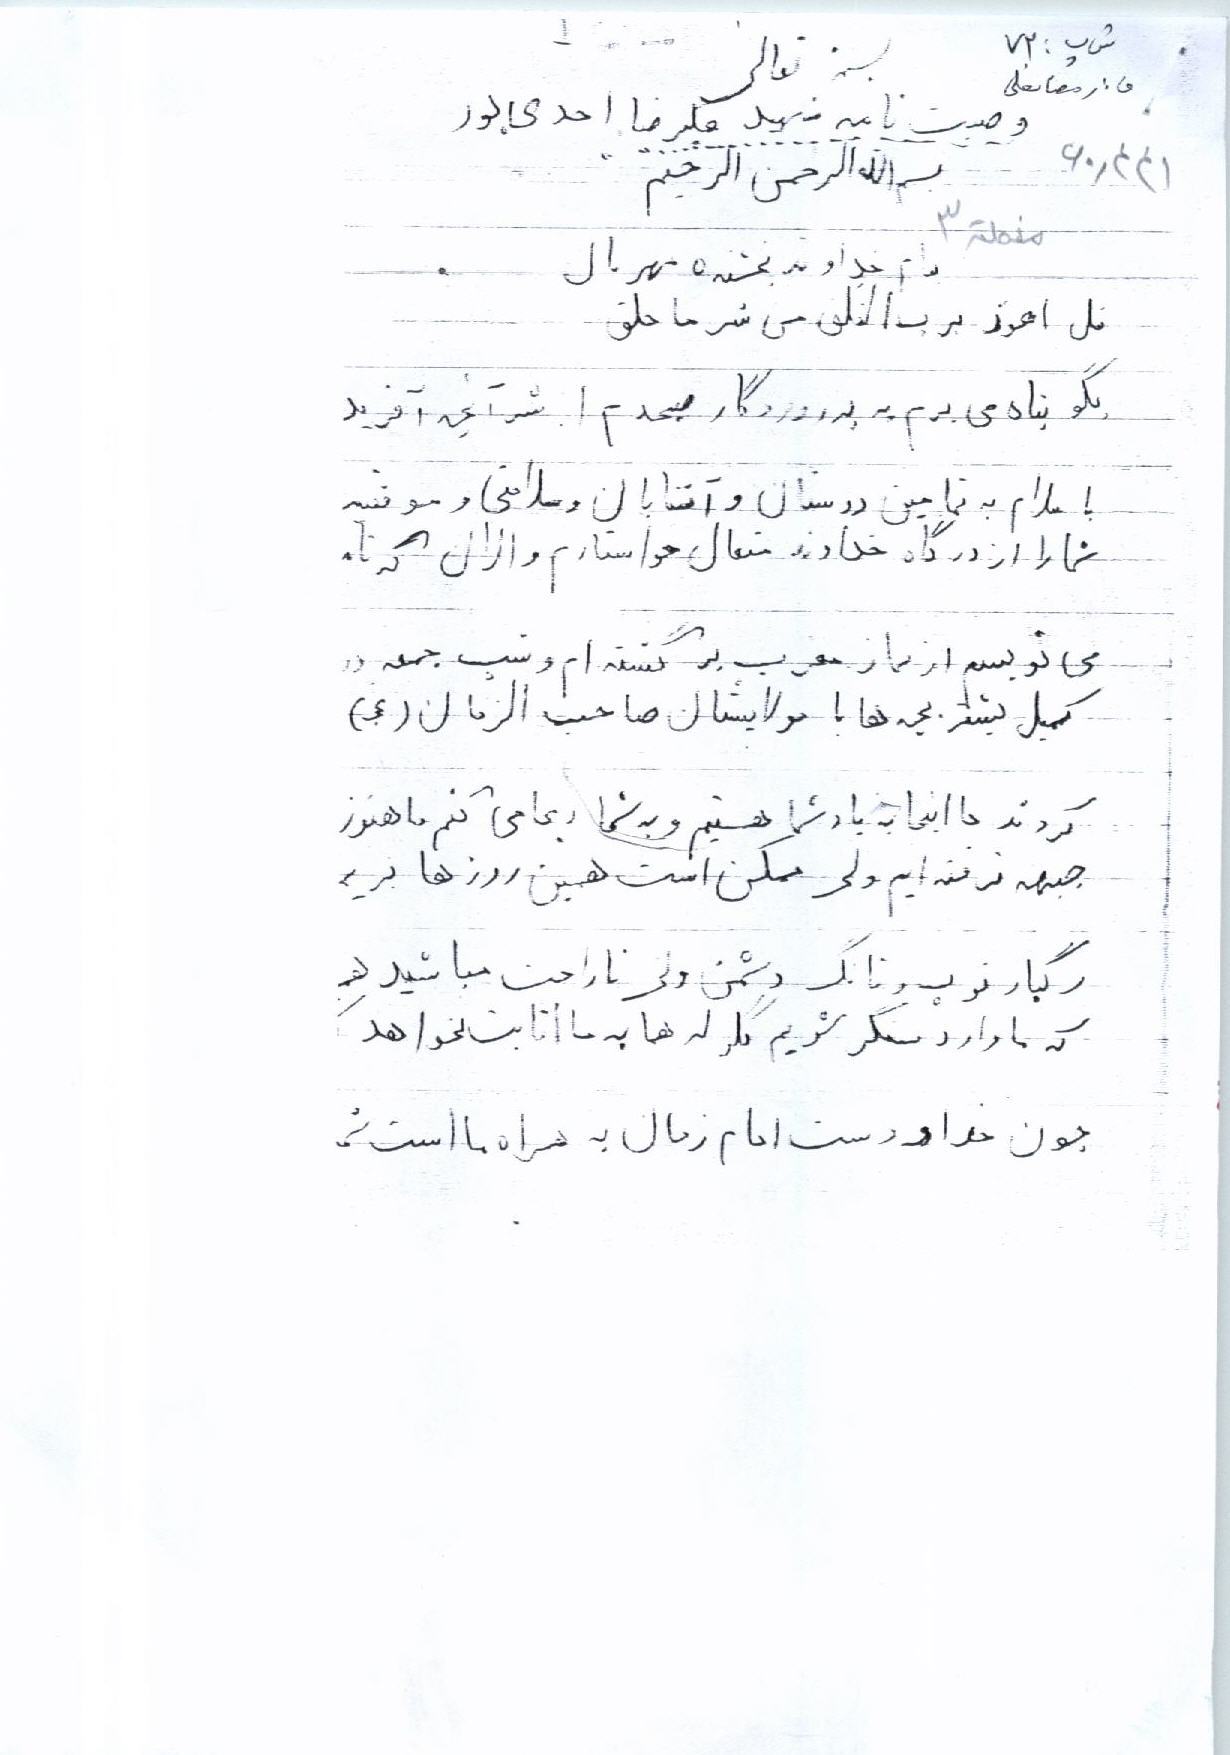 ش پ: ۷۲
ف: رمضانعلی
بسمه تعالی
وصیت نامه شهید علیرضا احدی پور
بسم الله الرحمن الرحیم
منطقه ۳
بنام خداوند بخشنده مهربان
قل اعوذ برب الفلق من شر ما خلق
بگو پناه می برم به پروردگار صبحدم از شر آنچه آفرید
با سلام به تمامی دوستان و آشنایان و سلامتی و موفقیت
شما را از درگاه خداوند متعال خواستارم و الان که نامه
می نویسم از نماز مغرب برگشته ام و شب جمعه در
کمیل بیشتر بچه ها با مولایشان صاحب الزمان (عج)
کردند ما اینجا به یاد شما هستیم و به شما دعا می کنم ما هنوز
جبهه نرفته ایم ولی ممکن است همین روزها بریم
رگبار توپ و تانگ دشمن ولی ناراحت مباشید هم
که ما وارد سنگر شویم گلوله ها به ما اثابت نخواهد
چون خدا و دست امام زمان به همراه ما است